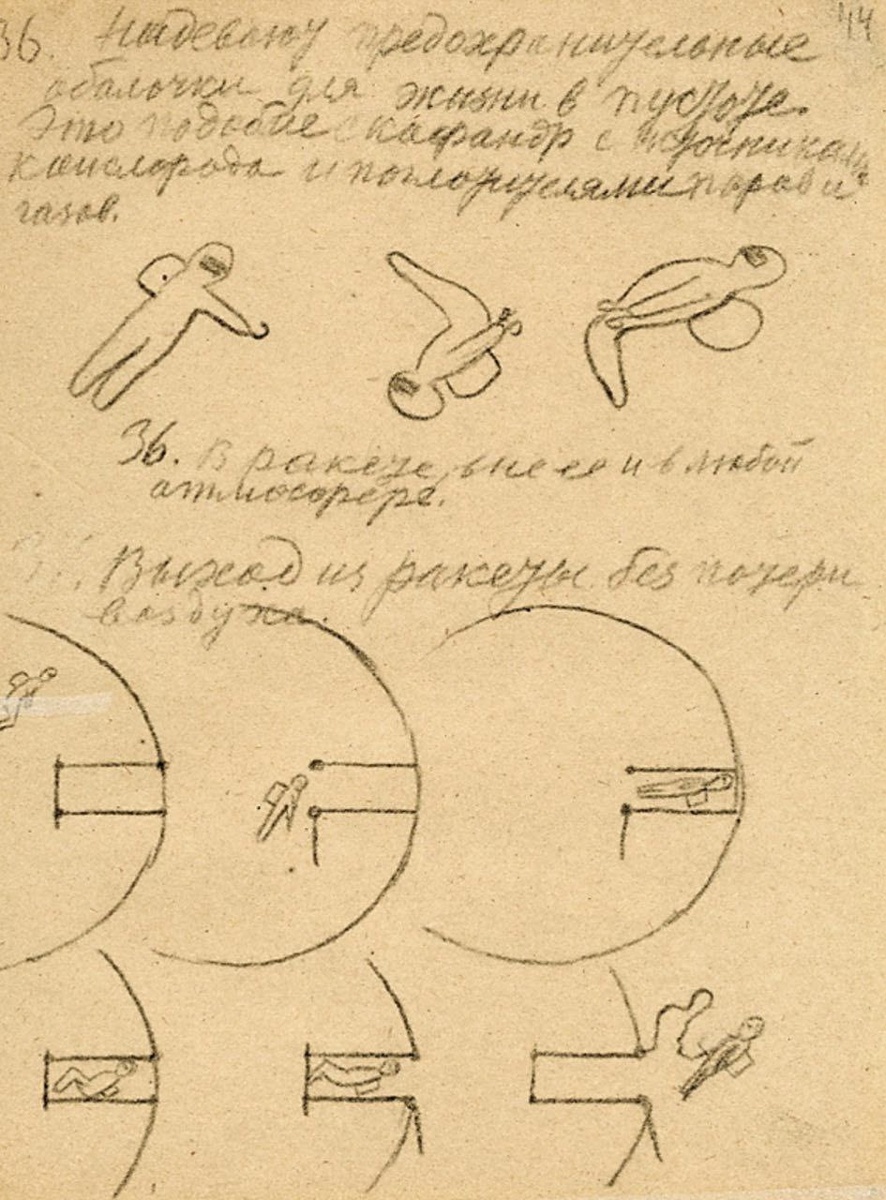 114
36. Надевают предохранительные
оболочки для жизни в пустоте.
Это подобие скафандр с источниками
кислорода и поглотителями паров и
газов.
36. В ракете, вне ее и в любой
атмосфере.
Выход из ракеты без потери
воздуха.